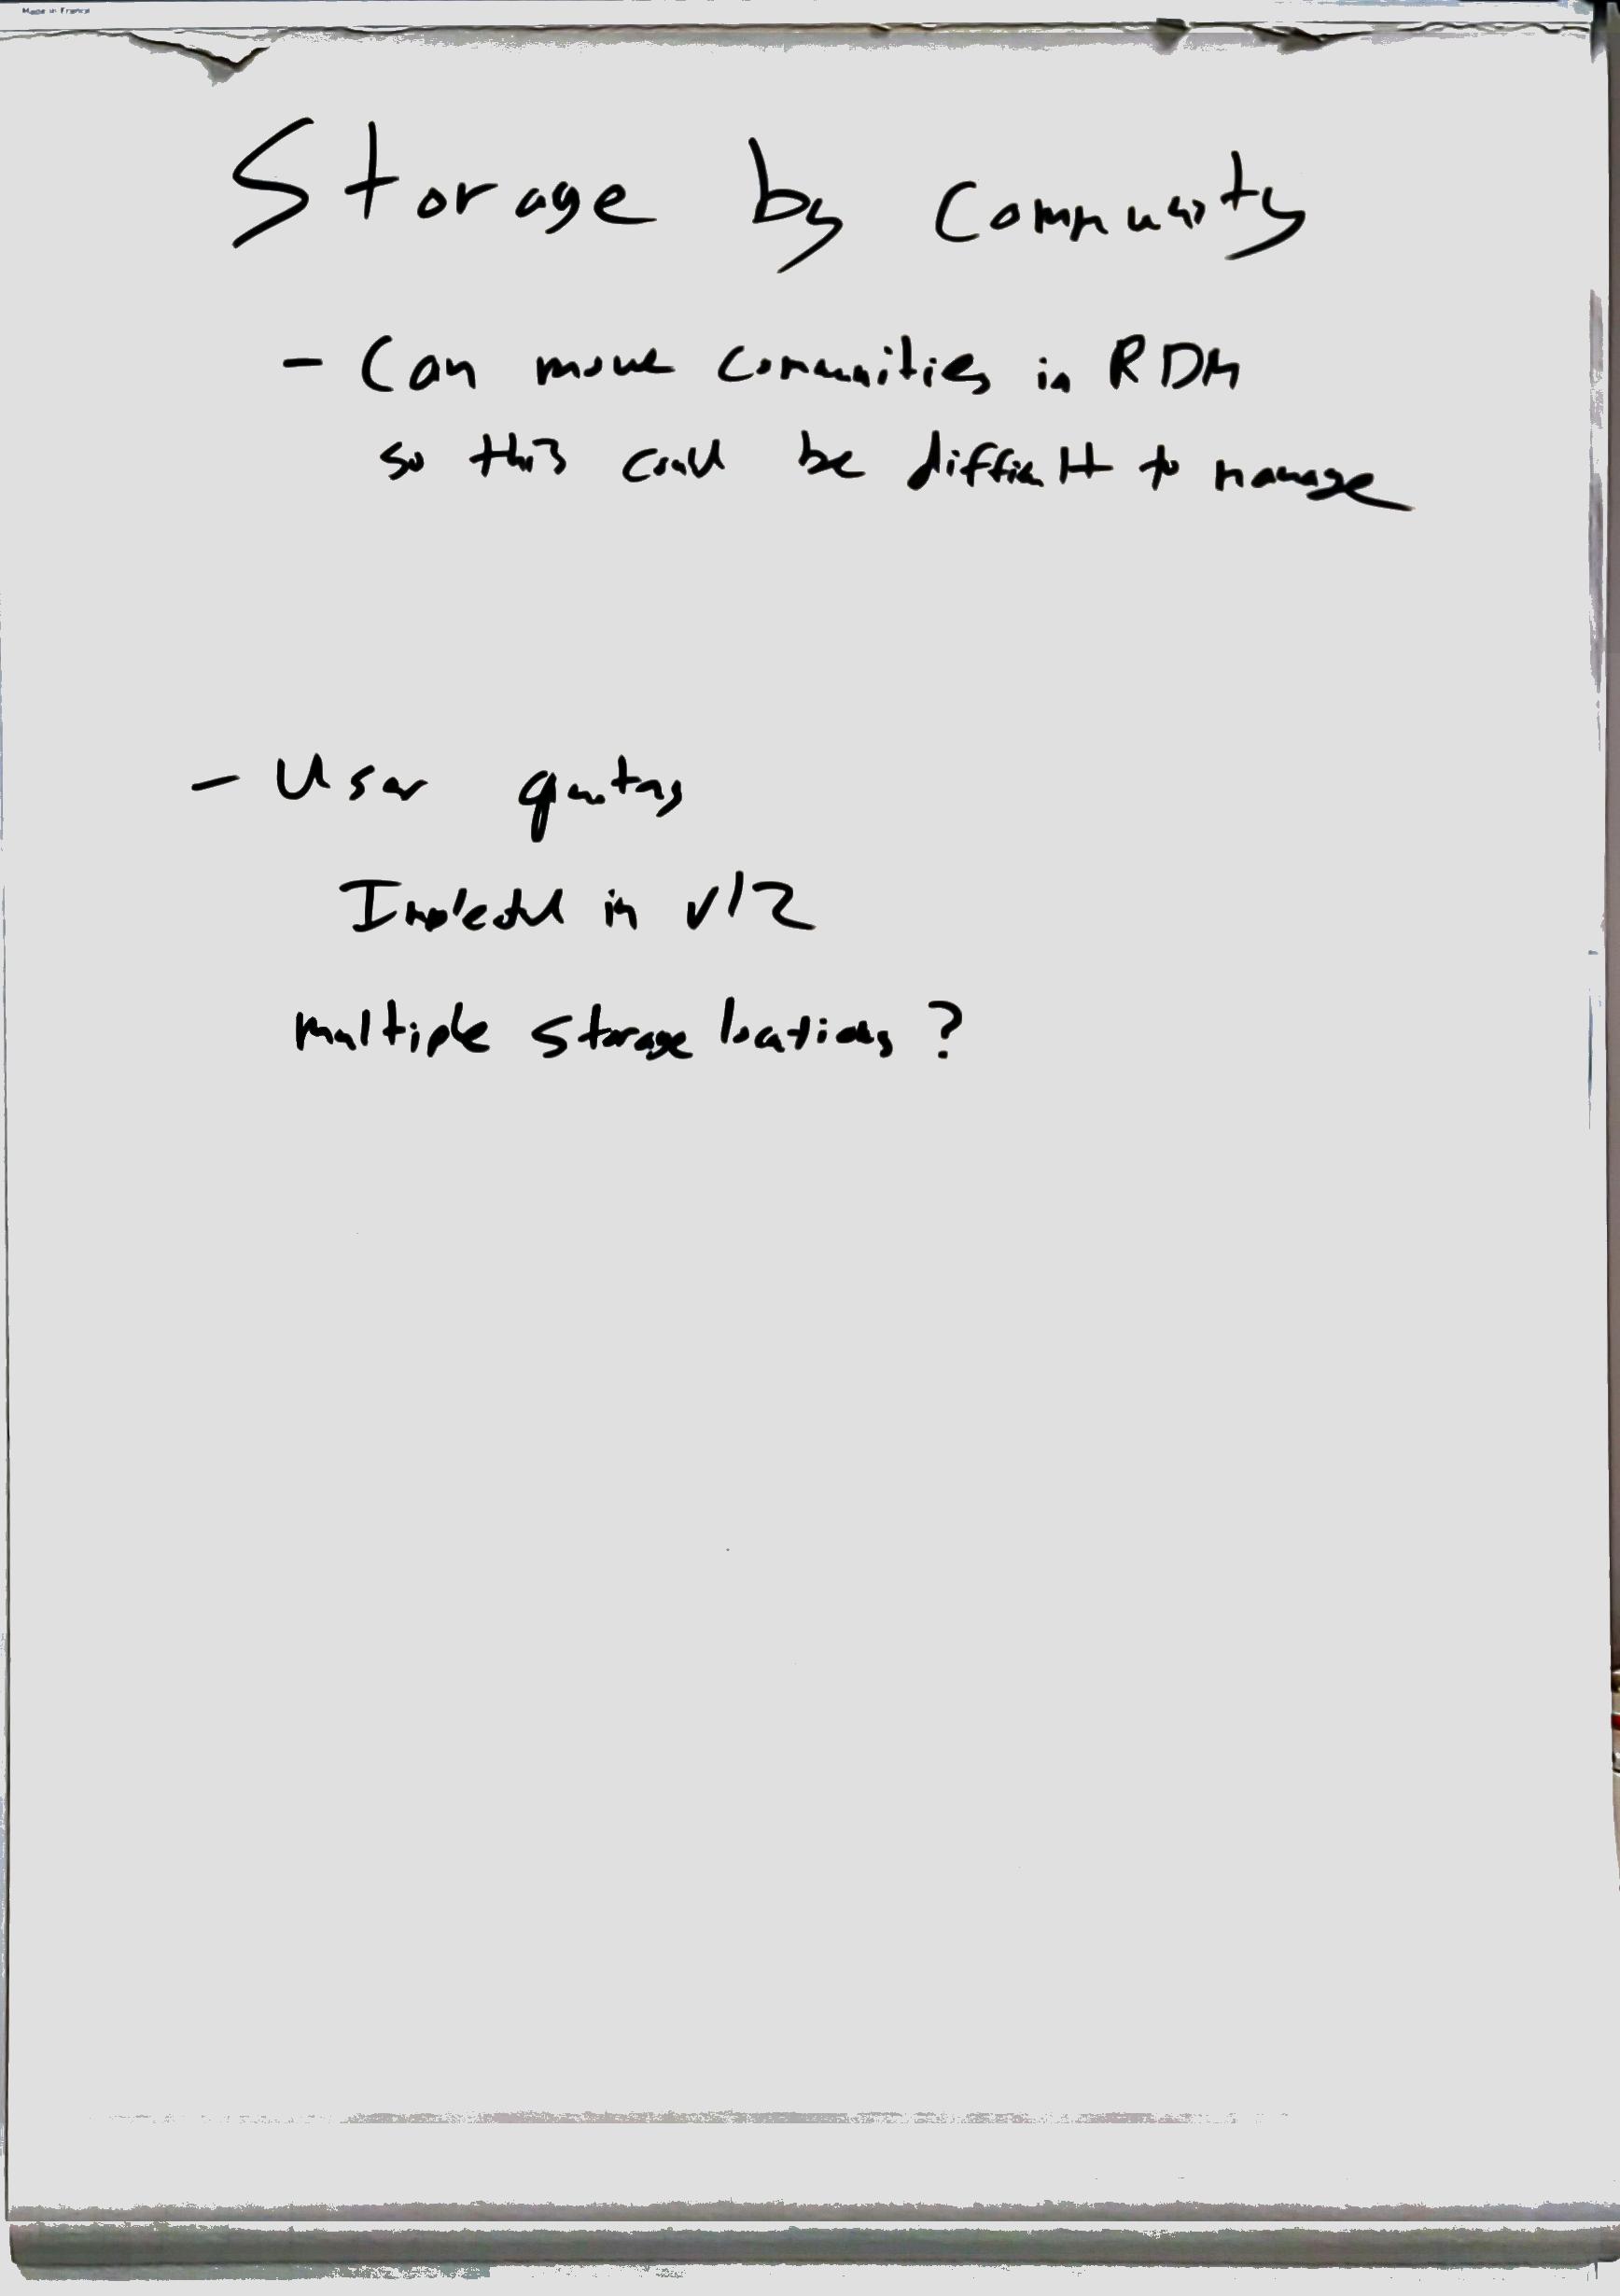 Made in France
Storage by Community
- Can move communities in RDM
so this could be difficult to manage
- User quotas
in v12
multiple storage locations ?